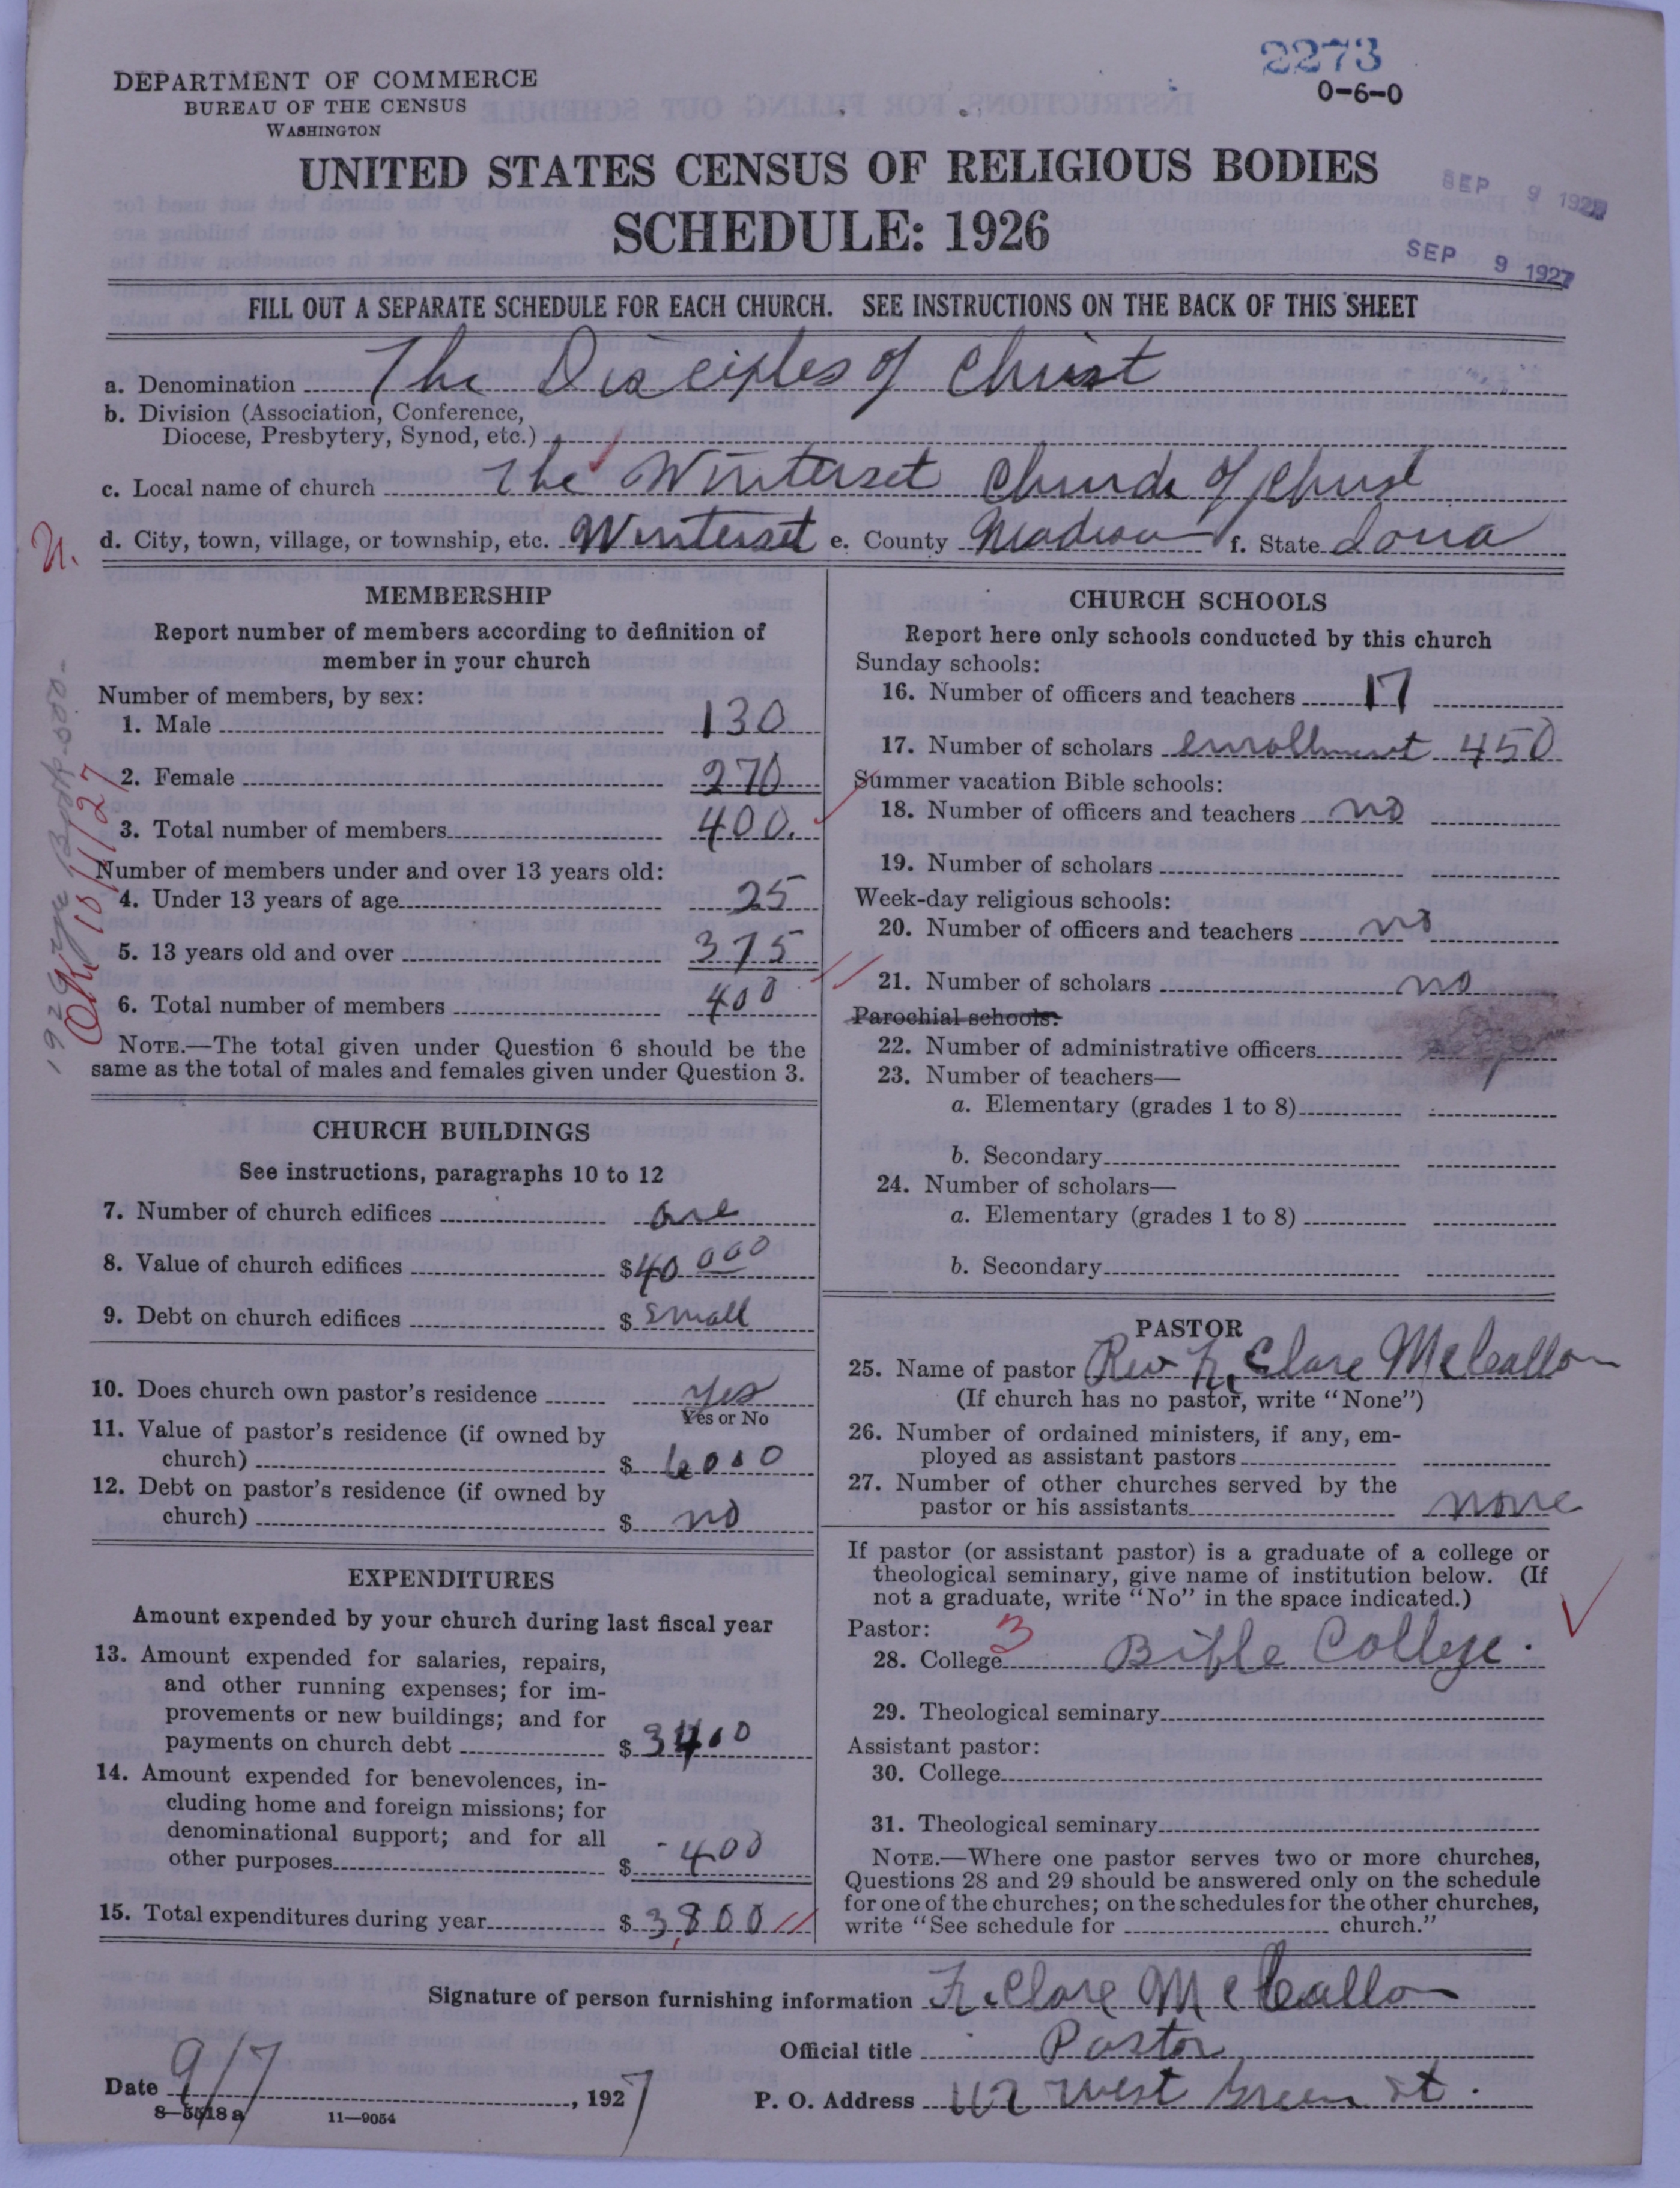 2273
0-6-0
DEPARTMENT OF COMMERCE
BUREAU OF THE CENSUS
WASHINGTON
UNITED STATES CENSUS OF RELIGIOUS BODIES
SCHEDULE: 1926
SEP 9 1927
SEP 9 1927
FILL OUT A SEPARATE SCHEDULE FOR EACH CHURCH. SEE INSTRUCTIONS ON THE BACK OF THIS SHEET
a. Denomination The Disciples of Christ
b. Division (Association, Conference,
Diocese, Presbytery, Synod, etc.)
c. Local name of church The Winterset Church of Christ
d. City, town, village, or township, etc. Winterset e. County Madison f. State Iowa
U.
MEMBERSHIP
Report number of members according to definition of
member in your church
Number of members, by sex:
1. Male 130
2. Female 270
3. Total number of members 400.
Number of members under and over 13 years old:
4. Under 13 years of age 25
5. 13 years old and over 375
6. Total number of members 400
NOTE.—The total given under Question 6 should be the
same as the total of males and females given under Question 3.
OK 10/1/27
CHURCH BUILDINGS
See instructions, paragraphs 10 to 12
7. Number of church edifices one
8. Value of church edifices $40000
9. Debt on church edifices $ small
10. Does church own pastor's residence yes
Yes or No
11. Value of pastor's residence (if owned by
church) $ 6000
12. Debt on pastor's residence (if owned by
church) $ no
EXPENDITURES
Amount expended by your church during last fiscal year
13. Amount expended for salaries, repairs,
and other running expenses; for im-
provements or new buildings; and for
payments on church debt $3400
14. Amount expended for benevolences, in-
cluding home and foreign missions; for
denominational support; and for all
other purposes $ 400
15. Total expenditures during year $3,800
CHURCH SCHOOLS
Report here only schools conducted by this church
Sunday schools:
16. Number of officers and teachers 17
17. Number of scholars enrollment 450
Summer vacation Bible schools:
18. Number of officers and teachers no
19. Number of scholars
Week-day religious schools:
20. Number of officers and teachers no
21. Number of scholars no
Parochial schools:
22. Number of administrative officers
23. Number of teachers—
a. Elementary (grades 1 to 8)
b. Secondary
24. Number of scholars—
a. Elementary (grades 1 to 8)
b. Secondary
PASTOR
25. Name of pastor Rev F. Clare McCallon
(If church has no pastor, write "None")
26. Number of ordained ministers, if any, em-
ployed as assistant pastors
27. Number of other churches served by the
pastor or his assistants none
If pastor (or assistant pastor) is a graduate of a college or
theological seminary, give name of institution below. (If
not a graduate, write "No" in the space indicated.)
Pastor: 3
28. College Bible College.
29. Theological seminary
Assistant pastor:
30. College
31. Theological seminary
NOTE.—Where one pastor serves two or more churches,
Questions 28 and 29 should be answered only on the schedule
for one of the churches; on the schedules for the other churches,
write "See schedule for church."
Signature of person furnishing information F. Clare McCallon
Official title Pastor
Date 9/7, 1927
P. O. Address West Green St.
8—5518 a 11—9054